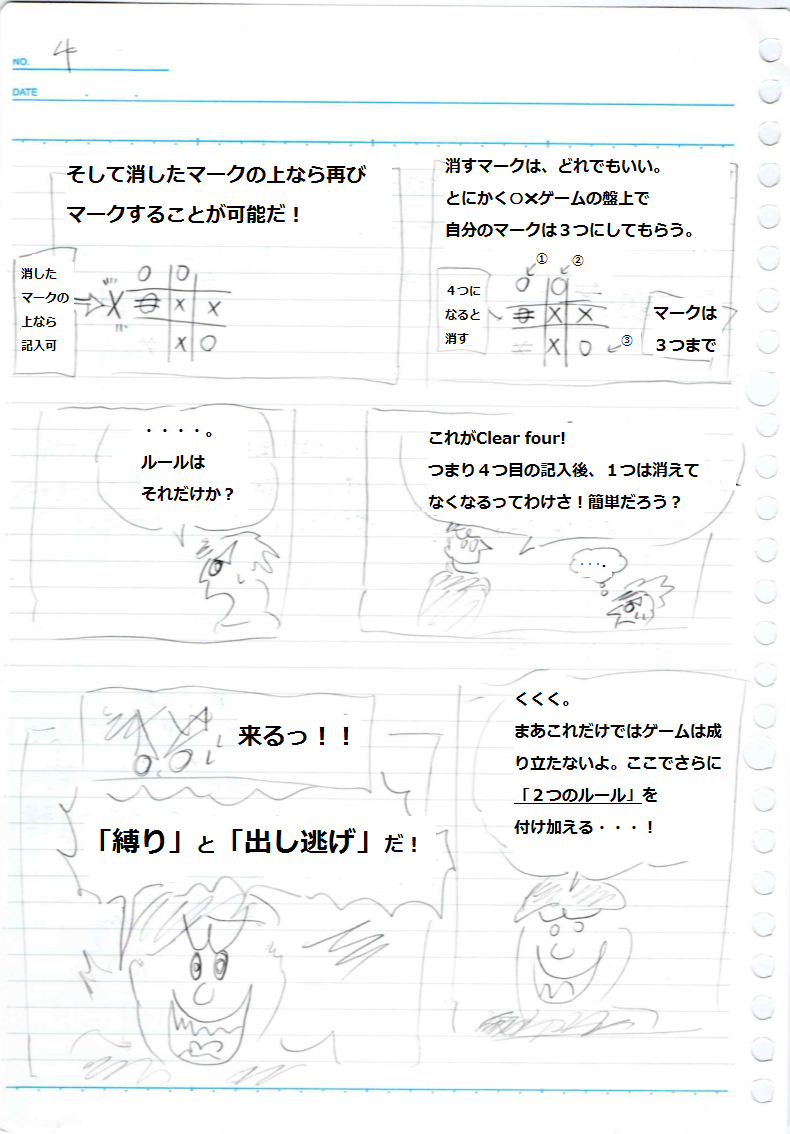 NO. 4
DATE
消すマークは、どれでもいい。
とにかく○×ゲームの盤上で
自分のマークは３つにしてもらう。
① ②
○ ○
４つに
なると
消す
○ × ×
× ○ ③
マークは
３つまで
そして消したマークの上なら再び
マークすることが可能だ！
消した
マークの
上なら
記入可
○ ○
× ○ × ×
× ○
これがClear four!
つまり４つ目の記入後、１つは消えて
なくなるってわけさ！簡単だろう？
・・・.
・・・・。
ルールは
それだけか？
くくく。
まあこれだけではゲームは成
り立たないよ。ここでさらに
「２つのルール」を
付け加える・・・！
来るっ！！
「縛り」と「出し逃げ」だ！